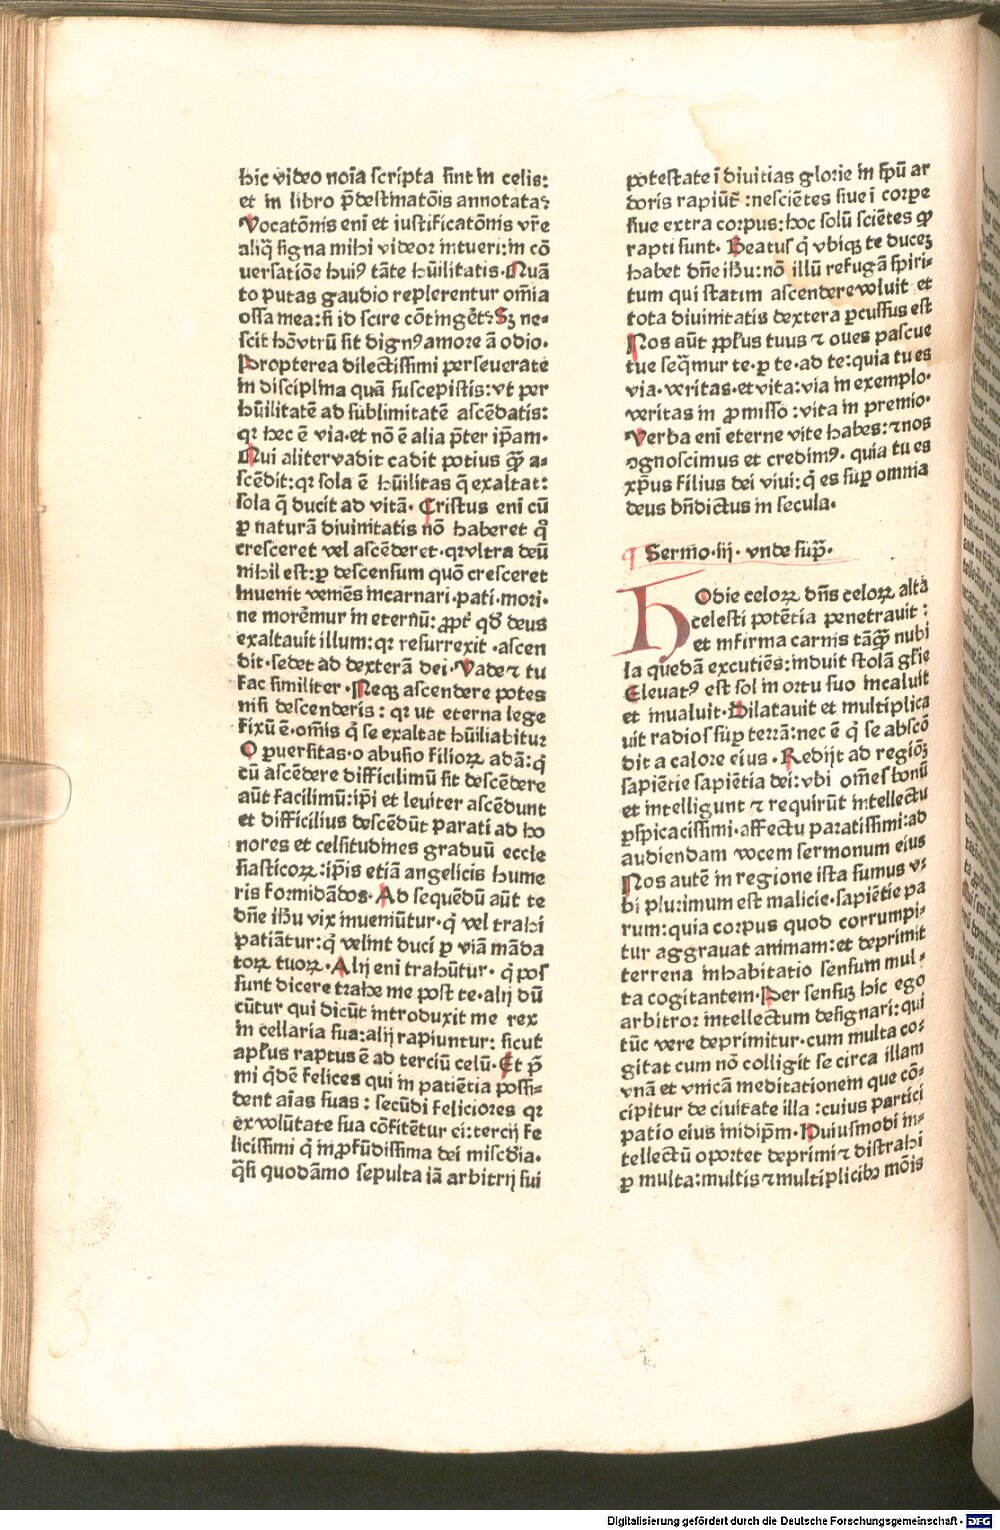 hic video noīa scripta sint in celis:
et in libro p̄destinatōis annotata?
Vocatōnis eni et iustificatōnis vr̄e
aliq̄ signa mihi videor intueri: in cō
uersatiōe huiꝰ tāte hūilitatis. Quā
to putas gaudio replerentur om̄ia
ossa mea: si id scire cōtingēt? Sꝫ ne⸗
scit hōvtrū sit dignꝰ amore ā odio.
Propterea dilectissimi perseuerate
in disciplina quā suscepistis: vt per
hūilitatē ad sublimitatē ascēdatis:
qꝛ hec ē via. et nō ē alia p̄ter ip̄am.
Qui aliter vadit cadit potius q̄ȝ a⸗
scēdit: qꝛ sola ē hūilitas q̄ exaltat:
sola q̄ ducit ad vitā. Cristus eni cū
ꝑ naturā diuinitatis nō haberet qͦ
cresceret vel ascēderet. qꝛ vltra deū
nihil est: ꝑ descensum quō cresceret
inuenit veniēs incarnari. pati. mori.
ne morēmur in eternū: ꝓpt̄ qđ deus
exaltauit illum: qꝛ resurrexit. ascen
dit. sedet ad dexterā dei. Vade ⁊ tu
fac similiter. Neqꝫ ascendere potes
nisi descenderis: qꝛ ut eterna lege
fixū ē. omīs q̄ se exaltat hūiliabitur
O ꝑuersitas. o abusio filioꝝ adā: q̄
cū ascēdere difficilimū sit descēdere
aūt facilimū: ip̄i et leuiter ascēdunt
et difficilius descēdūt parati ad ho
nores et celsitudines graduū eccle
siasticoꝝ: ip̄is etiā angelicis hume
ris formidādos. Ad sequēdū aūt te
dn̄e ih̄u vix inueniūtur. q̄ vel trahi
patiātur: q̄ velint duci ꝑ viā māda
toꝝ tuoꝝ. Alij eni trahūtur. q̄ pos
sunt dicere trahe me post te. alij dū
cūtur qui dicūt introduxit me rex
in cellaria sua: alij rapiuntur: sicut
apl̄us raptus ē ad terciū celū. Et p̄
mi q̄dē felices qui in patiētia possi⸗
dent aīas suas: secūdi feliciores qꝛ
ex volūtate sua cōfitētur ei: tercij fe
licissimi q̄ in ꝓfūdissima dei misc̄dia.
q̄si quodāmo sepulta iā arbitrij sui
potestate ī diuitias glorie in sp̄u ar
doris rapiūt̄: nesciētes siue ī corpe
siue extra corpus: hoc solū sciētes ꝙ
rapti sunt. Beatus q̄ vbiqꝫ te ducez
habet dn̄e ih̄u: nō illū refugā spiri⸗
tum qui statim ascendere voluit et
tota diuinitatis dextera ꝑcussus est
Nos aūt pp̄lus tuus ⁊ oues pascue
tue seq̄mur te. ꝑ te. ad te: quia tu es
via. veritas. et vita: via in exemplo.
veritas in ꝓmisso: vita in premio.
Verba eni eterne vite habes: ⁊ nos
ꝯgnoscimus et credimꝰ. quia tu es
xp̄us filius dei viui: q̄ es suꝑ omnia
deus bn̄dictus in secula.
Sermo. iij. vnde sup̄.
HOdie celoꝝ dn̄s celoꝝ alta
celesti potētia penetrauit:
et infirma carnis tāq̄ȝ nubi
la quedā excutiēs: induit stolā gl̄ie
Eleuatꝰ est sol in ortu suo incaluit
et inualuit. Dilatauit et multiplica
uit radios suꝑ terrā: nec ē q̄ se abscō
dit a calore eius. Redijt ad regiōꝫ
sapiētie sapiētia dei: vbi om̄es bonū
et intelligunt ⁊ requirūt intellectu
ꝑspicacissimi. affectu paratissimi: ad
audiendam vocem sermonum eius
Nos autē in regione ista sumus v⸗
bi plurimum est malicie. sapiētie pa
rum: quia corpus quod corrumpi⸗
tur aggrauat animam: et deprimit
terrena inhabitatio sensum mul⸗
ta cogitantem. Per sensuꝫ hic ego
arbitror intellectum designari: qui
tūc vere deprimitur. cum multa co⸗
gitat cum nō colligit se circa illam
vnā et vnicā meditationem que cō⸗
cipitur de ciuitate illa: cuius partici
patio eius in idip̄m. Huiusmodi in⸗
tellectū oportet deprimi ⁊ distrahi
ꝑ multa: multis ⁊ multiplicibꝫ mōis
Digitalisierung gefördert durch die Deutsche Forschungsgemeinschaft - DFG